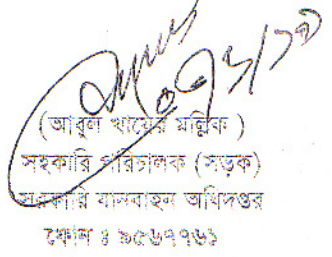 (আবুল খায়ের মল্লিক )
সহকারি পরিচালক (সড়ক)
সরকারি যানবাহন অধিদপ্তর
ফোন ঃ ৯৫৬৭৭৬১